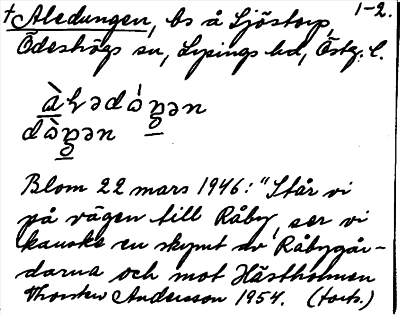 1-2.
† Aledungen, bs å Sjöstorp,
Ödeshögs sn, Lysings hd, Östg. l.
Blom 22 mars 1946: "Står vi
på vägen till Råby, ser vi
kanske en skymt av Råbygår-
darna och mot Hästholmen
Thorsten Andersson 1954. (forts.)